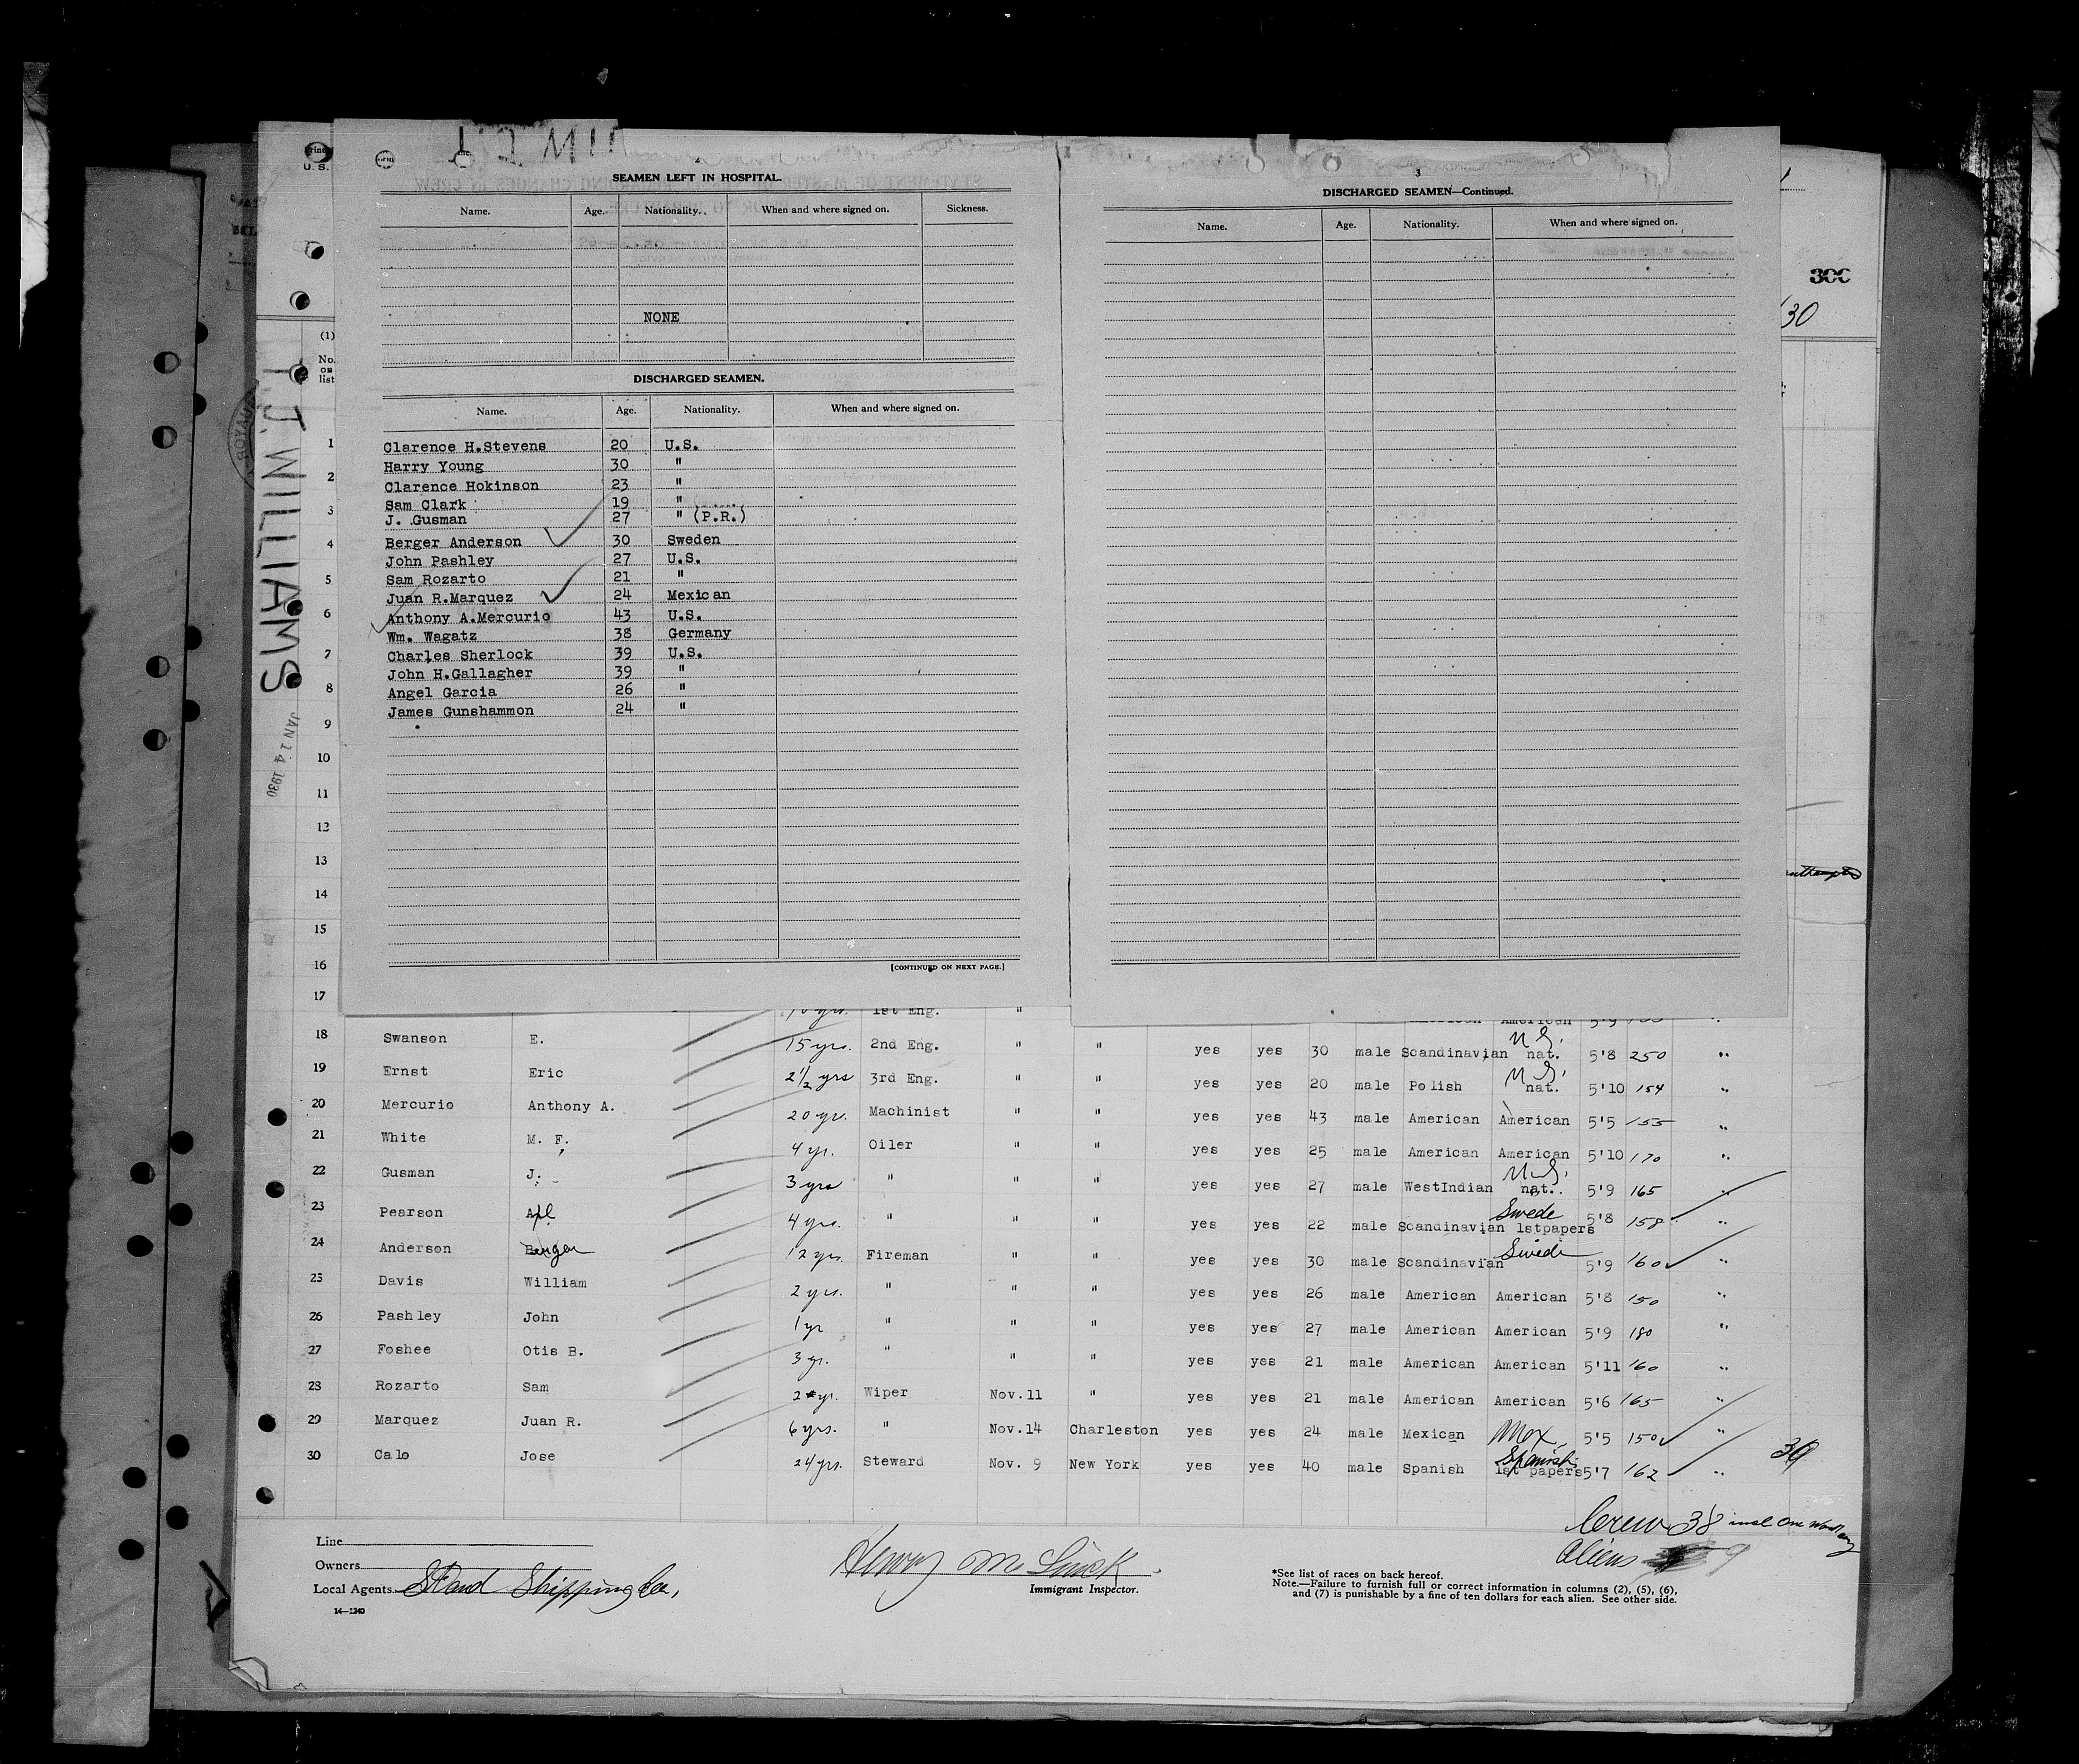 SEAMEN LEFT IN HOSPITAL.
Name. Age. Nationality. When and where signed on. Sickness.
NONE
DISCHARGED SEAMEN.
Name. Age. Nationality. When and where signed on.
Clarence H.Stevens 20 U.S.
Harry Young 30 "
Clarence Hokinson 23 "
Sam Clark 19 "
J. Gusman 27 " (P.R.)
Berger Anderson 30 Sweden
John Pashley 27 U.S.
Sam Rozarto 21 "
Juan R.Marquez 24 Mexican
Anthony A.Mercurio 43 U.S.
Wm. Wagatz 38 Germany
Charles Sherlock 39 U.S.
John H.Gallagher 39 "
Angel Garcia 26 "
James Gunshammon 24 "
[CONTINUED ON NEXT PAGE.]
3
DISCHARGED SEAMEN—Continued.
Name. Age. Nationality. When and where signed on.
300
30
U. S.
(1)
No. on list
T.J. WILLIAMS
JAN 14 1930
1
2
3
4
5
6
7
8
9
10
11
12
13
14
15
16
17 1st Eng. " American 5'9
18 Swanson E. 15 yrs. 2nd Eng. " " yes yes 30 male Scandinavian U.S. nat. 5'8 250 "
19 Ernst Eric 2 1/2 yrs 3rd Eng. " " yes yes 20 male Polish U.S. nat. 5'10 154 "
20 Mercurio Anthony A. 20 yr. Machinist " " yes yes 43 male American American 5'5 155 "
21 White M. F. 4 yr. Oiler " " yes yes 25 male American American 5'10 170 "
22 Gusman J. 3 yrs " " " yes yes 27 male WestIndian U.S. nat. 5'9 165 "
23 Pearson Apl 4 yrs. " " " yes yes 22 male Scandinavian Swede 1stpapers 5'8 158 "
24 Anderson Berger 12 yrs. Fireman " " yes yes 30 male Scandinavian Swede 5'9 160 "
25 Davis William 2 yrs. " " " yes yes 26 male American American 5'8 150 "
26 Pashley John 1 yr " " " yes yes 27 male American American 5'9 180 "
27 Foshee Otis B. 3 yr. " " " yes yes 21 male American American 5'11 160 "
28 Rozarto Sam 2 yr. Wiper Nov.11 " yes yes 21 male American American 5'6 165 "
29 Marquez Juan R. 6 yrs. " Nov.14 Charleston yes yes 24 male Mexican Mex. 5'5 150 "
30 Calo Jose 24 yrs. Steward Nov. 9 New York yes yes 40 male Spanish Spanish 1st papers 5'7 162 "
39
Crew 38 incl one
Aliens 9
Line
Owners
Local Agents Strand Shipping Co,
14—1240
Immigrant Inspector.
*See list of races on back hereof.
Note.—Failure to furnish full or correct information in columns (2), (5), (6),
and (7) is punishable by a fine of ten dollars for each alien. See other side.